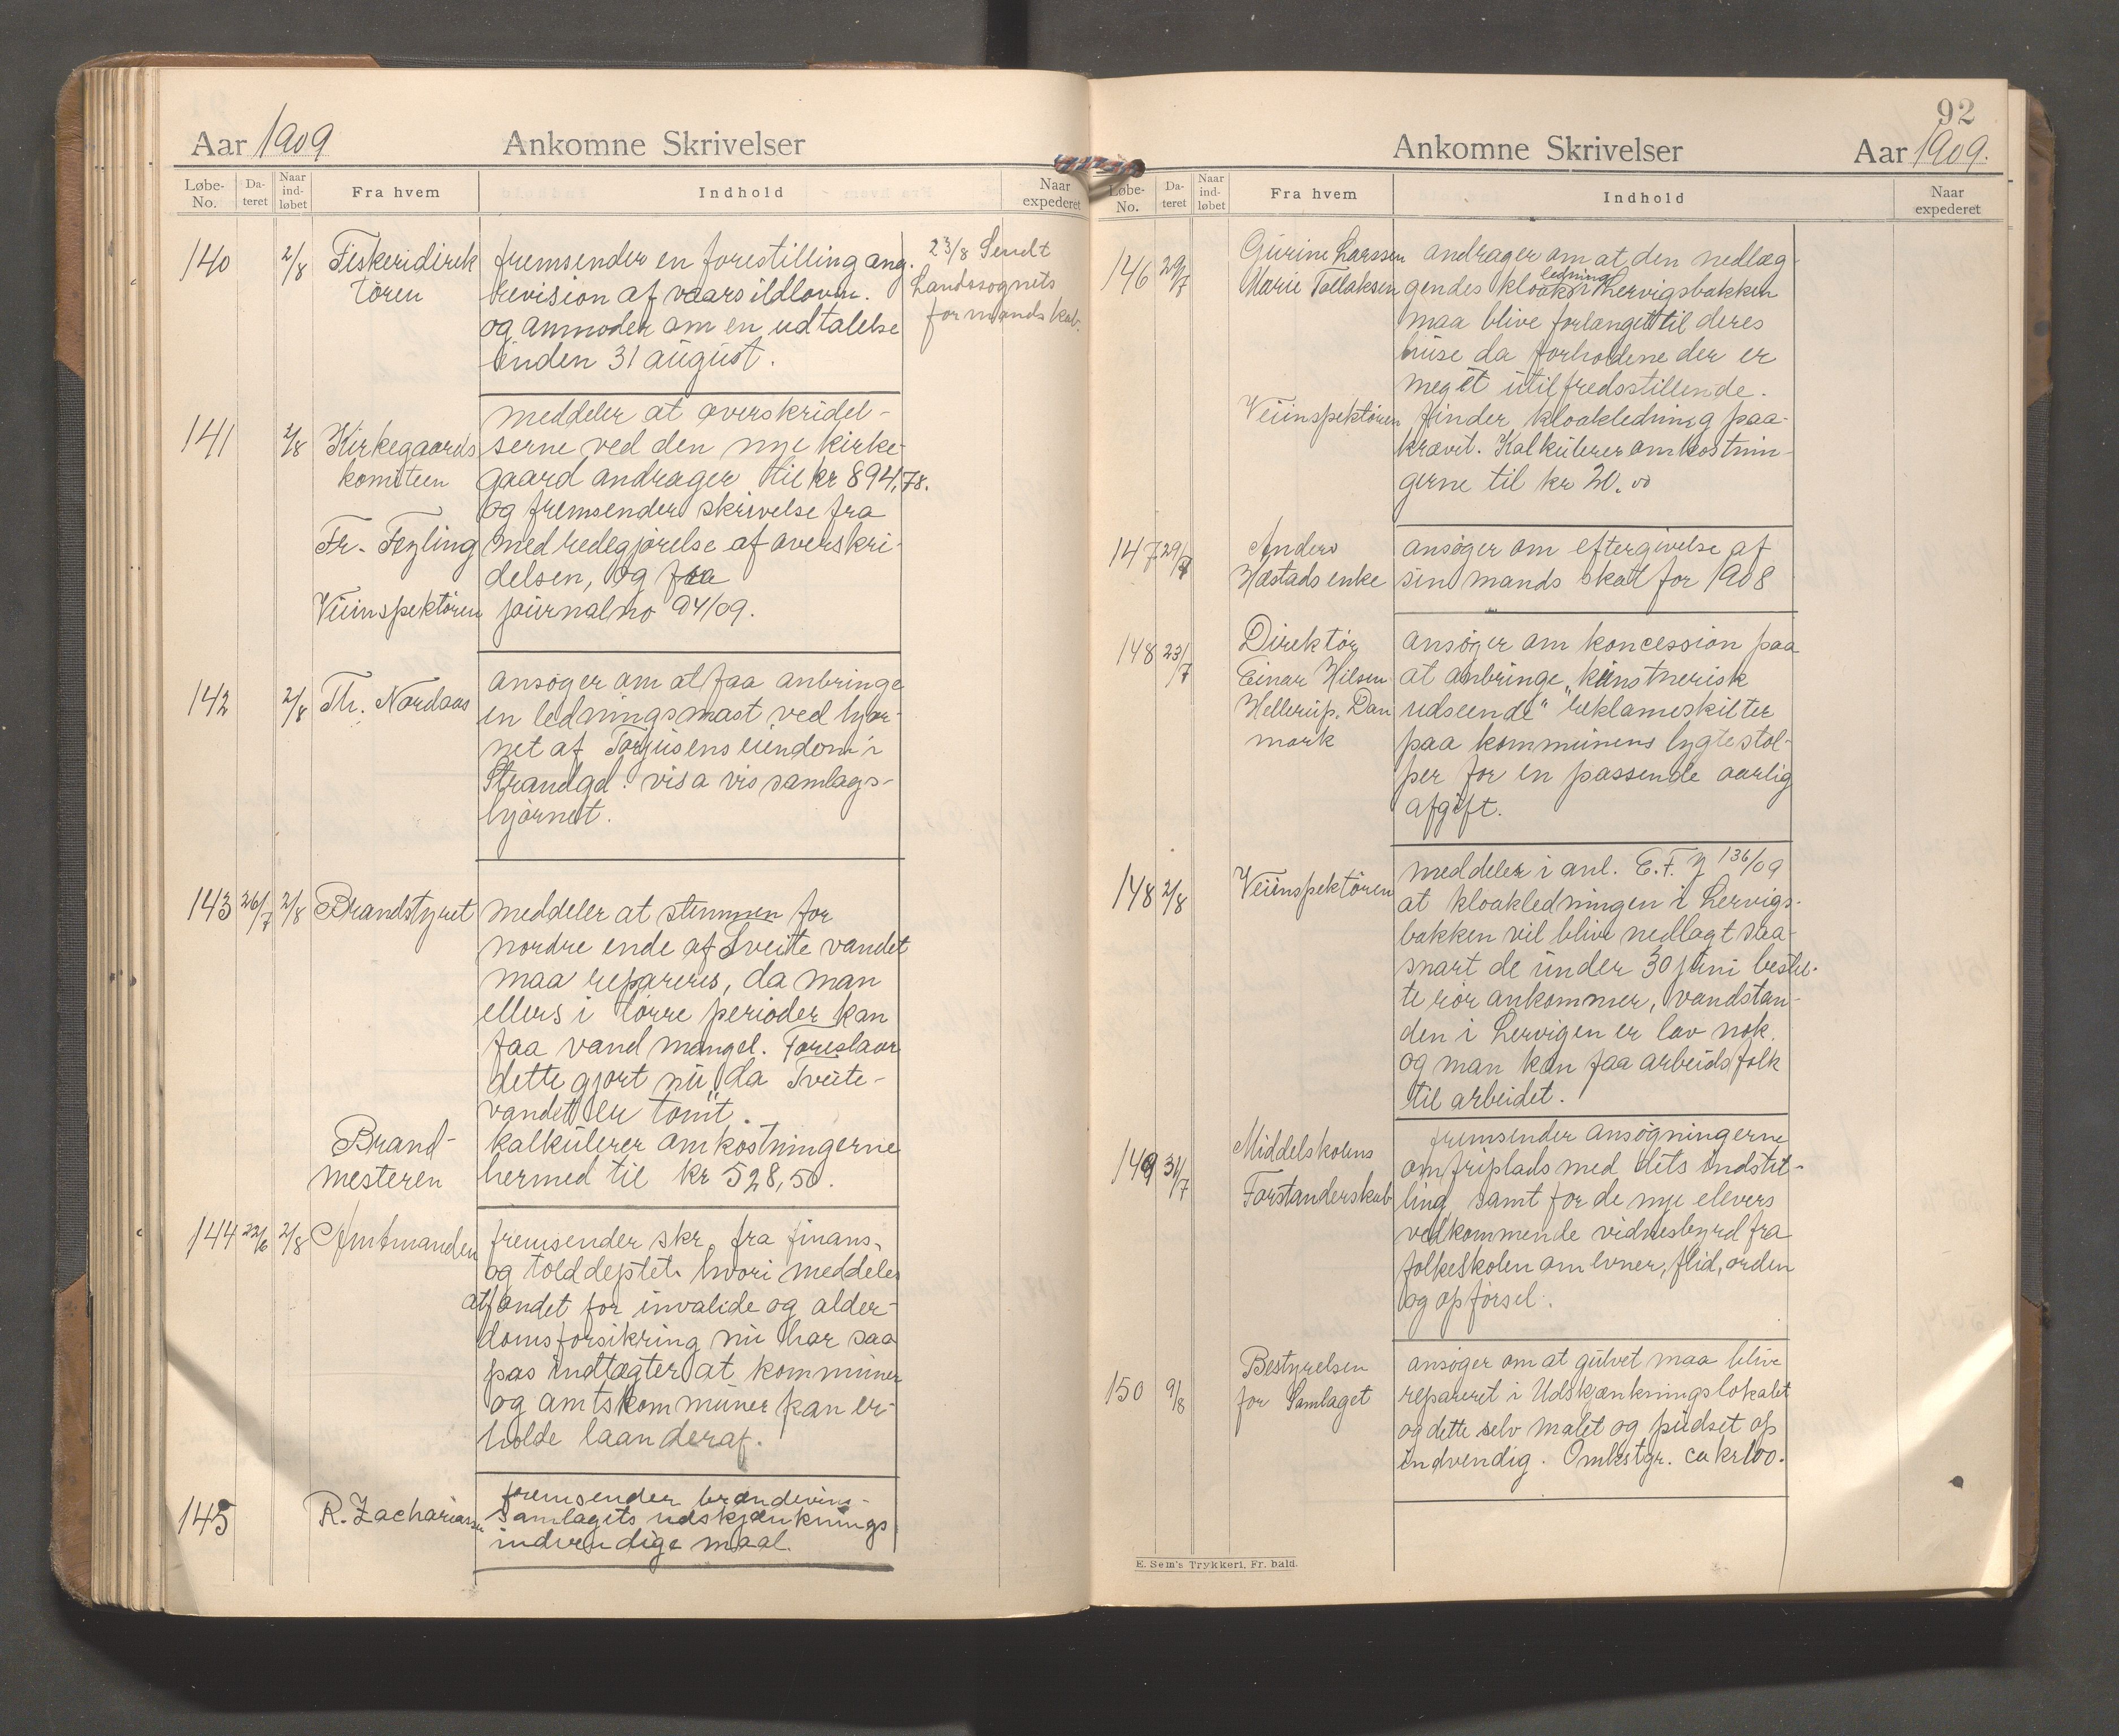 Aar 1909 Ankomne Skrivelser
Løbe-No. Da-teret Naar ind-løbet Fra hvem Indhold Naar expederet
140 2/8 Fiskeridirek fremsender en forestilling ang. 23/8 Sendt
tören revision af vaarsildloven. Landssognets
og anmoder om en udtalelse formandskab.
inden 31 august.
meddeler at overskridel-
141 2/8 Kirkegaards serne ved den nye kirke-
komiteen gaard andrager til kr 894,78.
og fremsender skrivelse fra
Fr. Feyling med redegjørelse af overskri-
delsen, og fra
Veiinspektören journal no 94/09.
ansøger om at faa anbringe
142 2/8 Th. Nordaas en ledningsmast ved hjør-
net af Torjusens eiendom i
Strandgd. vis a vis samlags-
hjørnet.
143 26/7 2/8 Brandstyret meddeler at stemmen for
nordre ende af Tveite vandet
maa repareres, da man
ellers i tørre perioder kan
faa vand mangel. Foreslaar
dette gjort nu, da Tveite-
vandet er tomt.
Brand- kalkulerer omkostningerne
mesteren hermed til kr 528,50.
144 22/6 2/8 Amtmanden fremsender skr. fra finans-
og tolddeptet. hvori meddeles
at fondet for invalide og alder-
domsforsikring nu har saa
pas indtægter at kommuner
og amtskommuner kan er-
holde laan deraf.
fremsender brændevins-
145 R. Zachariassen Samlagets udskjænknings
indvendige maal.
92
Ankomne Skrivelser Aar 1909.
Løbe-No. Da-teret Naar ind-løbet Fra hvem Indhold Naar expederet
Gurine Larssen andrager om at den nedlæg-
146 29/7 Marie Tollaksen gendes kloakledning i Lervigsbakken
maa blive forlænget til deres
huse da forholdene der er
meget utilfredsstillende.
Veiinspektören finder kloakledning paa-
krævet. Kalkulerer omkostnin-
gerne til kr 20.00
147 29/7 Anders ansøger om eftergivelse af
Hæstads enke sin mands skat for 1908
Direktör ansøger om koncession paa
148 23/7 Einar Hilsen at anbringe "kunstnerisk
Hellerup. Dan udseende" reklameskilter
mark paa kommunens lygtestol-
per for en passende aarlig
afgift.
meddeler i anl. E.F. 136/09
148 2/8 Veiinspektören at kloakledningen i Lervigs-
bakken vil blive nedlagt saa-
snart de under 30 juni bestil-
te rör ankommer, vandstan-
den i Lervigen er lav nok.
og man kan faa arbeidsfolk
til arbeidet.
Middelskolens fremsender ansøgningerne
149 31/7 om friplads med dets indstil-
Forstanderskab ling samt for de nye elevers
vedkommende vidnesbyrd fra
folkeskolen om evner, flid, orden
og opførsel.
Bestyrelsen ansøger om at gulvet maa blive
150 9/8 for Samlaget repareret i Udskjænkningslokalet
og dette selv malet og pudset op
indvendig. Omkstgr. ca kr 100.
E. Sem's Trykkeri, Fr. hald.